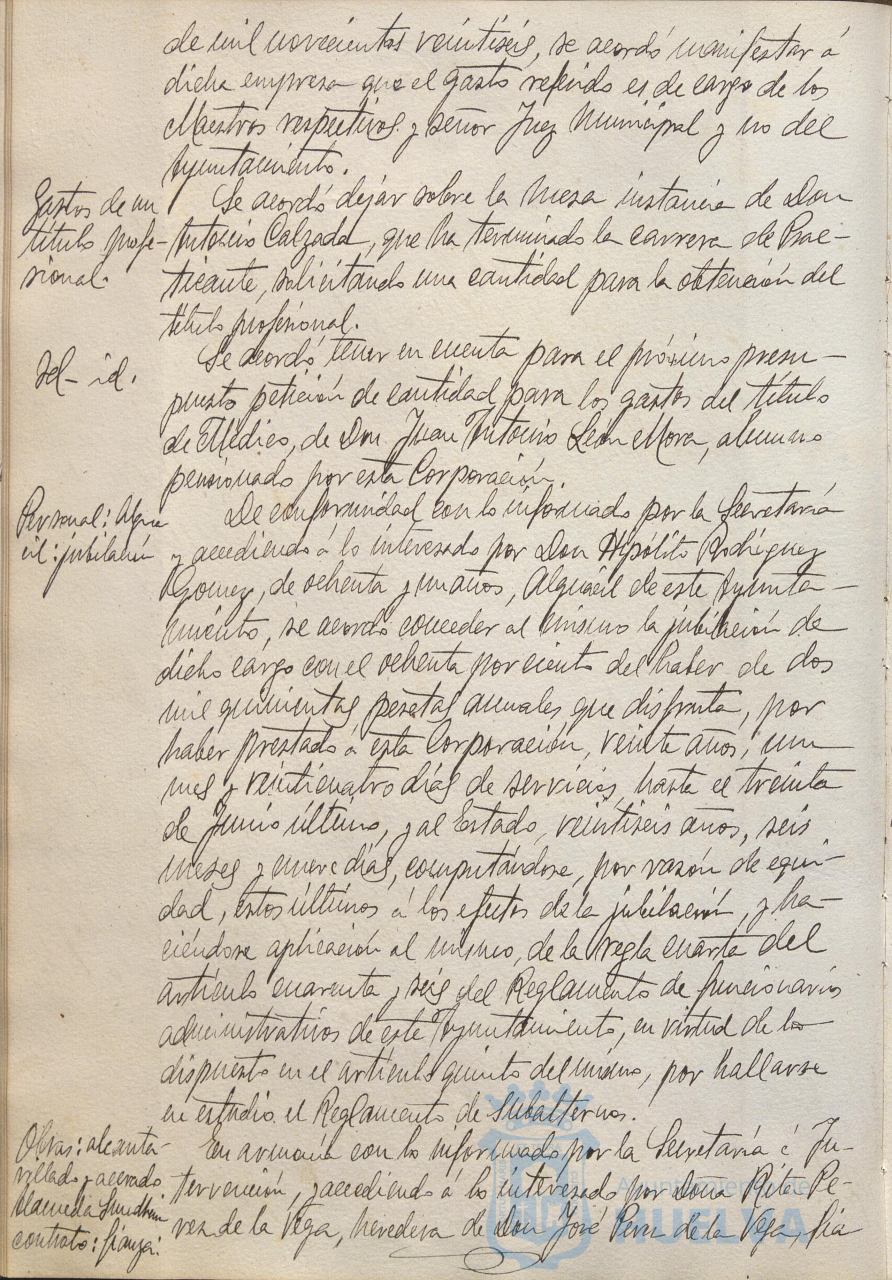 de mil novecientos veintiséis, se acordó manifestar á
dicha empresa que el gasto referido es de cargo de los
Maestros respectivos y señor Juez Municipal y no del
Ayuntamiento.
Gastos de un
título profe-
sional.
Se acordó dejar sobre la mesa instancia de Don
Antonio Calzada, que ha terminado la carrera de Prac-
ticante, solicitando una cantidad para la obtención del
título profesional.
Id- id.
Se acordó tener en cuenta para el próximo presu-
puesto petición de cantidad para los gastos del título
de Médico, de Don Juan Antonio León Mora, alumno
pensionado por esta Corporación.
Personal: Algua
cil: jubilación
De conformidad con lo informado por la Secretaría
y accediendo á lo interesado por Don Hipólito Rodríguez
Gomez, de ochenta y un años, Alguacil de este Ayunta-
miento, se acordó conceder al mismo la jubilación de
dicho cargo con el ochenta por ciento del haber de dos
mil quinientas pesetas anuales que disfruta, por
haber prestado á esta Corporación, veinte años, un
mes y veinticuatro días de servicios, hasta el treinta
de Junio último, y al Estado, veintiseis años, seis
meses y nueve días, computándose, por razón de equi-
dad, estos últimos á los efectos de la jubilación, y ha-
ciéndose aplicación al mismo, de la regla cuarta del
artículo cuarenta y seis del Reglamento de funcionarios
administrativos de este Ayuntamiento, en virtud de lo
dispuesto en el artículo quinto del mismo, por hallarse
en estudio el Reglamento de Subalternos.
Obras: alcanta-
rillado y acerado
Alameda Sundheim
contrato: fianza:
En armonía con lo informado por la Secretaría é In-
tervención, y accediendo á lo interesado por Doña Rita Pe-
rez de la Vega, heredera de Don José Perez de la Vega, fia
Ayuntamiento de
HUELVA